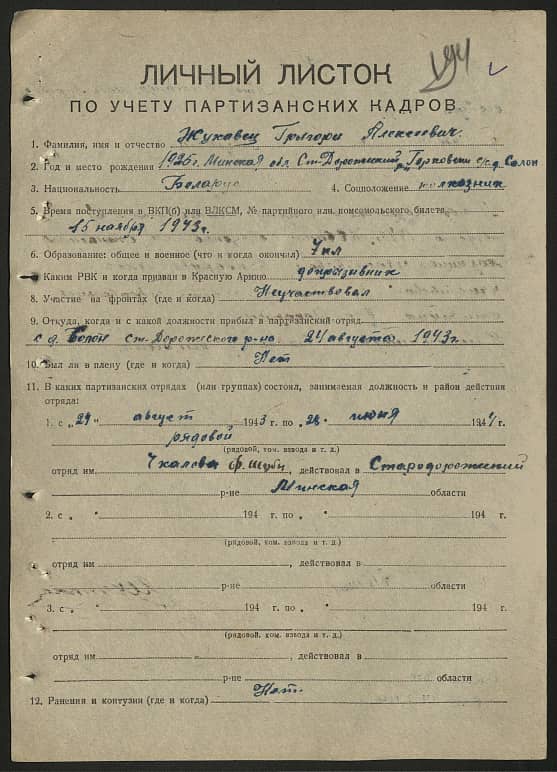 ЛИЧНЫЙ ЛИСТОК
ПО УЧЕТУ ПАРТИЗАНСКИХ КАДРОВ
1. Фамилия, имя и отчество Жукавец Грыгори Алексеевич.
2. Год и место рождения 1926г. Минская обл. Ст-Дорожский р. Горковски с/с д. Солон
3. Национальность Беларус 4. Соцположение колхозник
5. Время поступления в ВКП(б) или ВЛКСМ, № партийного или комсомольского билета
15 ноября 1943г.
6. Образование: общее и военное (что и когда окончил) 7 кл
7. Каким РВК и когда призван в Красную Армию допризывник
8. Участие на фронтах (где и когда) Неучаствовал
9. Откуда, когда и с какой должности прибыл в партизанский отряд
с д. Солон Ст-Дорожского р-на. 24 августа 1943г.
10. Был ли в плену (где и когда) Нет
11. В каких партизанских отрядах (или группах) состоял, занимаемая должность и район действия
отряда:
1. с „24" август 1943 г. по „28" июня 1944 г.
рядовой
(рядовой, ком. взвода и т. д.)
отряд им. Чкалова , действовал в Стародорожский
р-не Минская области
2. с „ " 194 г. по „ " 194 г.
(рядовой, ком. взвода и т. д.)
отряд им. , действовал в
р-не области
3. с „ " 194 г. по „ " 194 г.
(рядовой, ком. взвода и т. д.)
отряд им. , действовал в
р-не области
12. Ранения и контузии (где и когда) Нет.